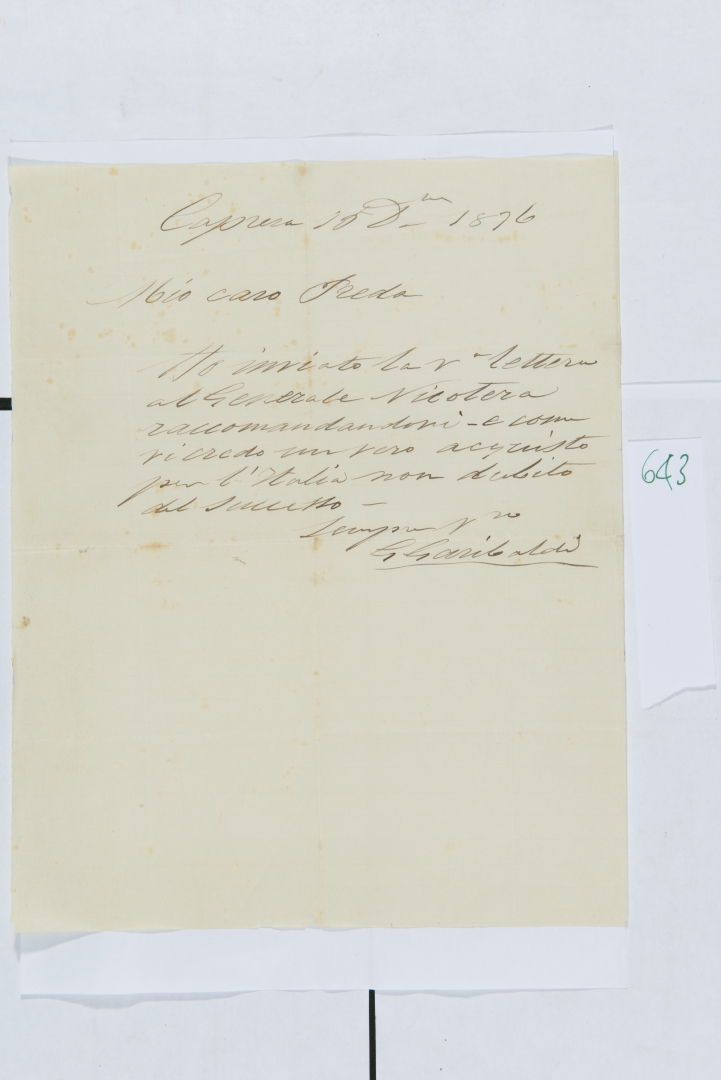 Caprera 10 Dbre 1876
Mio caro Freda
Ho inviato la va lettera
al Generale Nicotera
raccomandandovi - e come
vi credo un vero acquisto
per l'Italia non dubito
del successo -
Sempre Vro
G Garibaldi
643